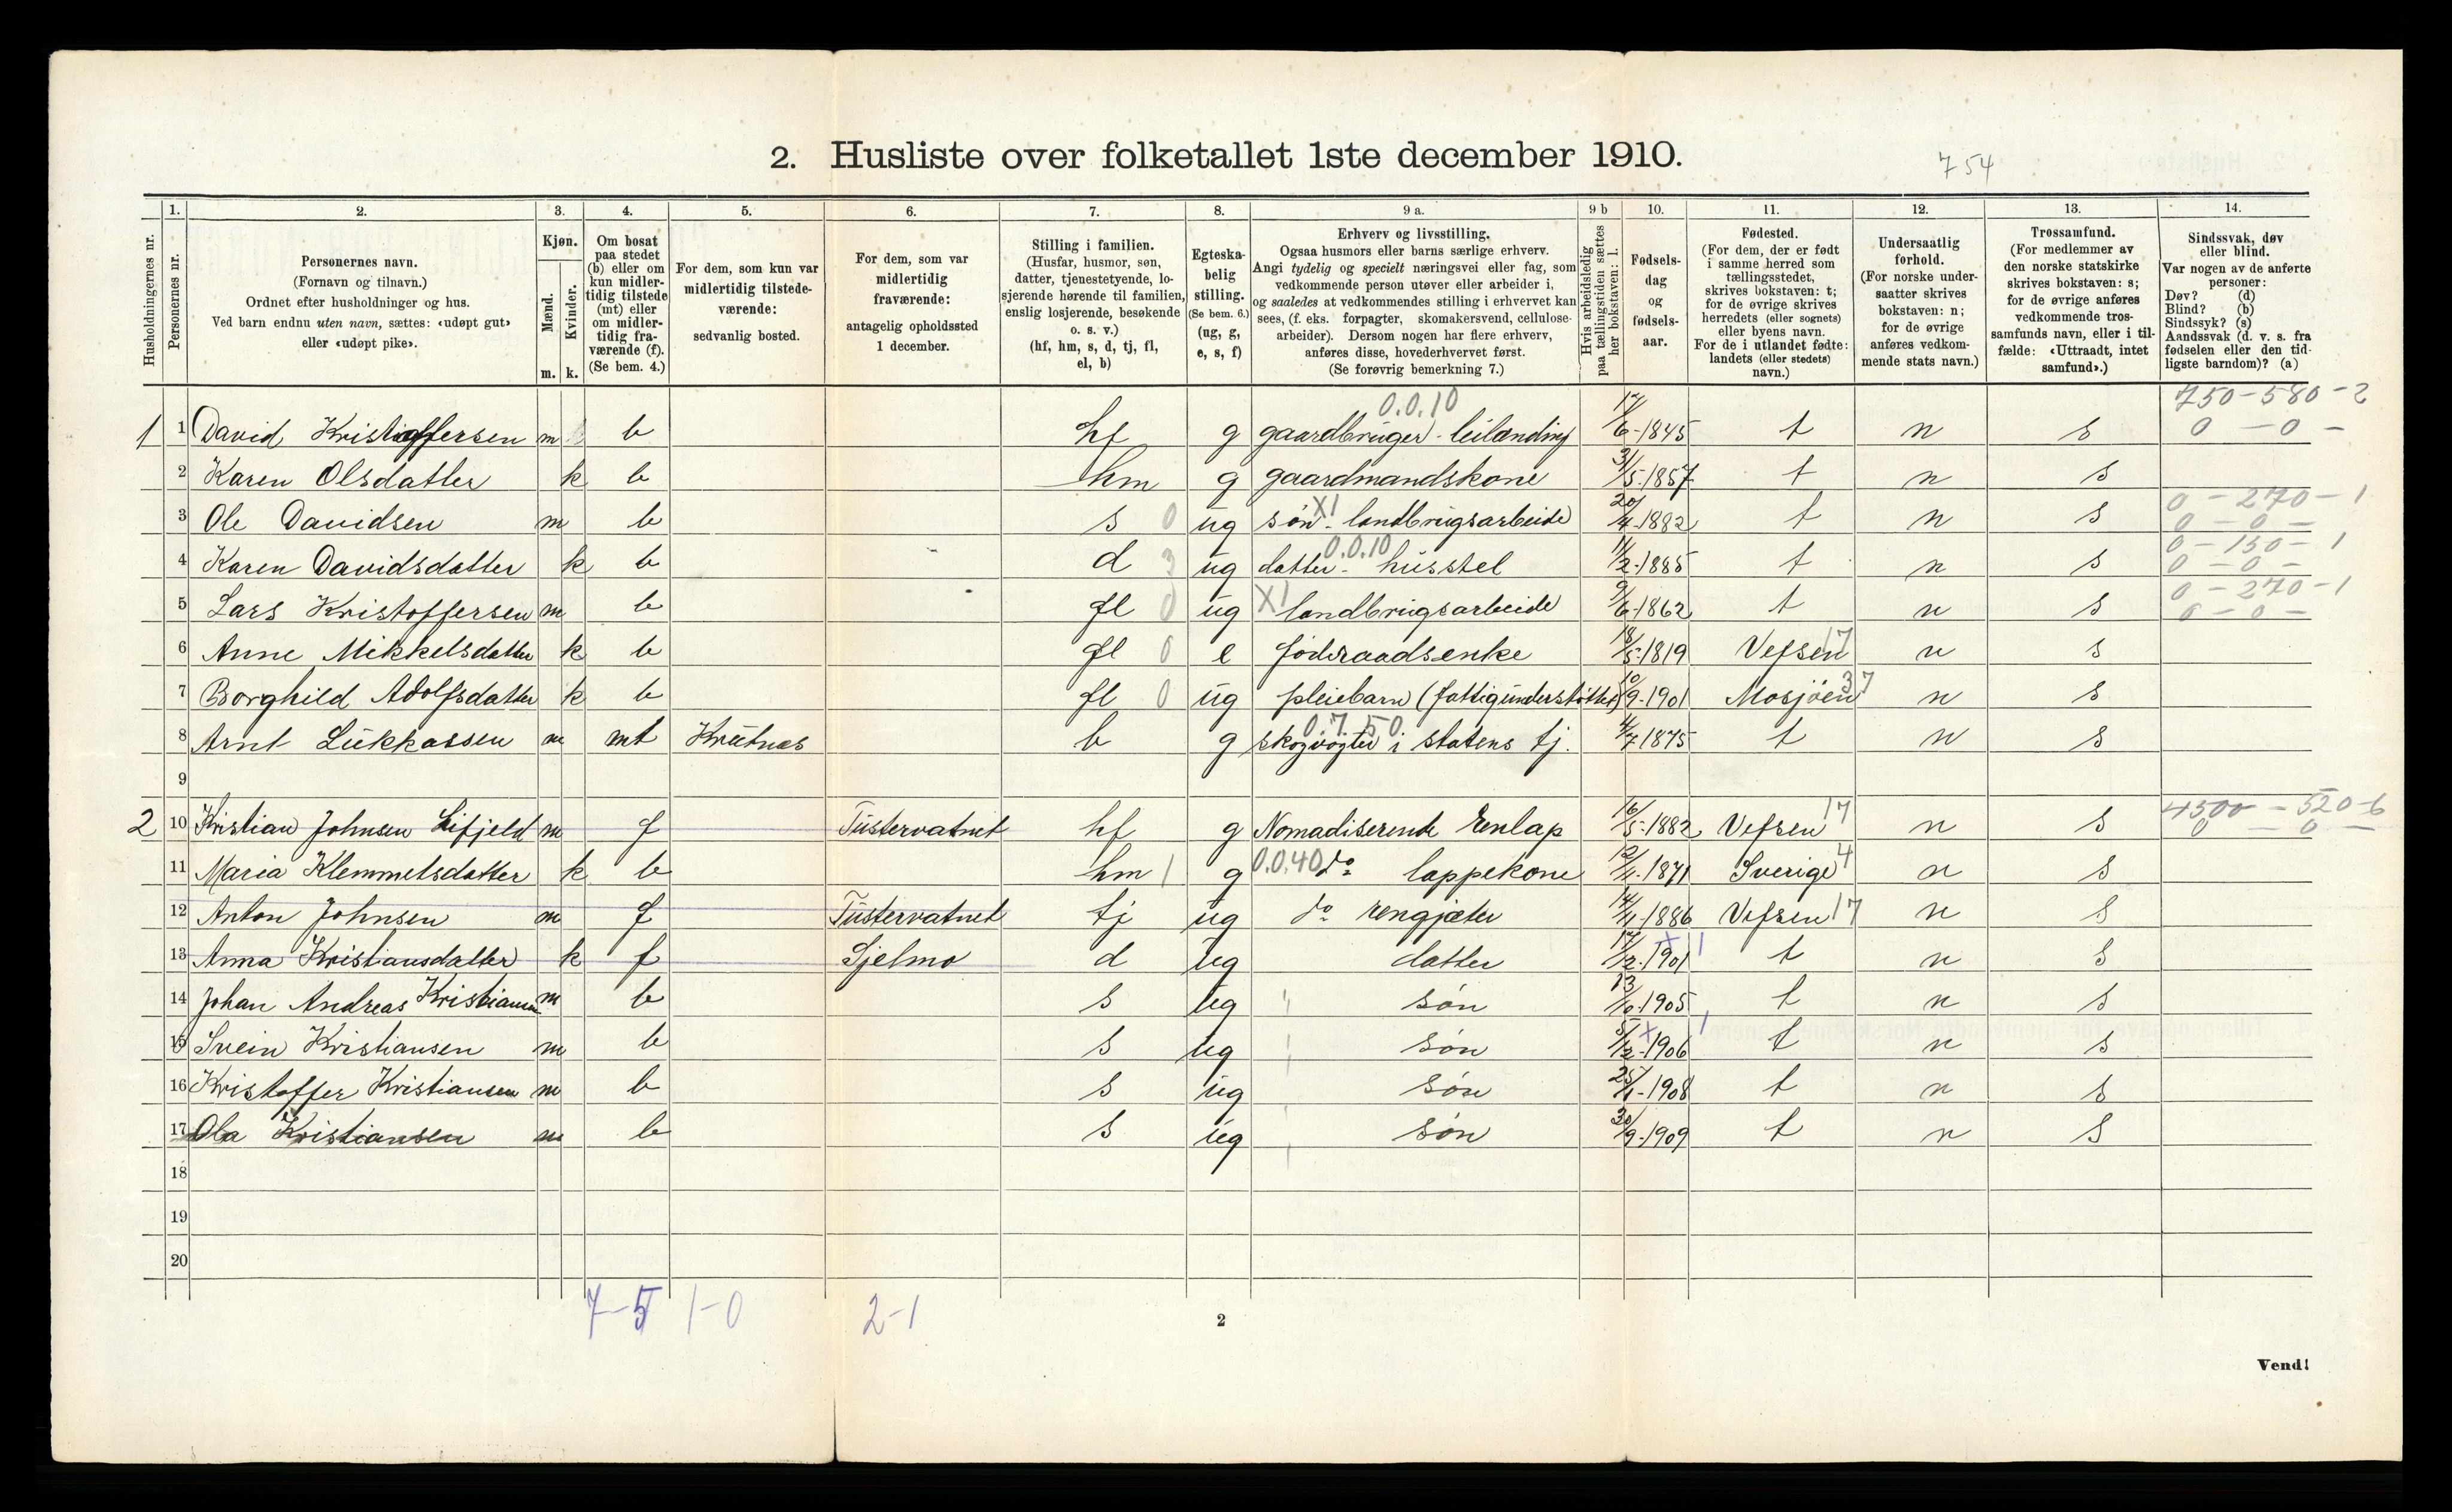 2. Husliste over folketallet 1ste december 1910.
754
1. 2. 3. 4. 5. 6. 7. 8. 9 a. 9 b 10. 11. 12. 13. 14.
Husholdningernes nr.
Personernes nr.
Personernes navn.
(Fornavn og tilnavn.)
Ordnet efter husholdninger og hus.
Ved barn endnu uten navn, sættes: «udøpt gut»
eller «udøpt pike».
Kjøn.
Mænd.
Kvinder.
m. k.
Om bosat
paa stedet
(b) eller om
kun midler-
tidig tilstede
(mt) eller
om midler-
tidig fra-
værende (f).
(Se bem. 4.)
For dem, som kun var
midlertidig tilstede-
værende:
sedvanlig bosted.
For dem, som var
midlertidig
fraværende:
antagelig opholdssted
1 december.
Stilling i familien.
(Husfar, husmor, søn,
datter, tjenestetyende, lo-
sjerende hørende til familien,
enslig losjerende, besøkende
o. s. v.)
(hf, hm, s, d, tj, fl,
el, b)
Egteska-
belig
stilling.
(Se bem. 6.)
(ug, g,
e, s, f)
Erhverv og livsstilling.
Ogsaa husmors eller barns særlige erhverv.
Angi tydelig og specielt næringsvei eller fag, som
vedkommende person utøver eller arbeider i,
og saaledes at vedkommendes stilling i erhvervet kan
sees, (f. eks. forpagter, skomakersvend, cellulose-
arbeider). Dersom nogen har flere erhverv,
anføres disse, hovederhvervet først.
(Se forøvrig bemerkning 7.)
Hvis arbeidsledig
paa tællingstiden sættes
her bokstaven: l.
Fødsels-
dag
og
fødsels-
aar.
Fødested.
(For dem, der er født
i samme herred som
tællingsstedet,
skrives bokstaven: t;
for de øvrige skrives
herredets (eller sognets)
eller byens navn.
For de i utlandet fødte:
landets (eller stedets)
navn.)
Undersaatlig
forhold.
(For norske under-
saatter skrives
bokstaven: n;
for de øvrige
anføres vedkom-
mende stats navn.)
Trossamfund.
(For medlemmer av
den norske statskirke
skrives bokstaven: s;
for de øvrige anføres
vedkommende tros-
samfunds navn, eller i til-
fælde: «Uttraadt, intet
samfund».)
Sindssvak, døv
eller blind.
Var nogen av de anførte
personer:
Døv? (d)
Blind? (b)
Sindssyk? (s)
Aandssvak (d. v. s. fra
fødselen eller den tid-
ligste barndom)? (a)
0.0.10 750-580-2
1 1 David Kristoffersen m b hf g gaardbruger-leilending 17/6-1845 t n s 0-0-
2 Karen Olsdatter k b hm g gaardmandskone 31/5-1857 t n s
XI 0-270-1
3 Ole Davidsen m b s 0 ug søn-landbrugsarbeide 20/4-1882 t n s 0-0-
0.0.10 0-150-1
4 Karen Davidsdatter k b d 3 ug datter-husstel 11/2-1885 t n s 0-0-
0-270-1
5 Lars Kristoffersen m b fl 0 ug XI landbrugsarbeide 9/6-1862 t n s 0-0-
6 Anne Mikkelsdatter k b fl 0 e føderaadsenke 18/5-1819 Vefsen 17 n s
7 Borghild Adolfsdatter k b fl 0 ug pleiebarn (fattigunderstøttet) 10/9-1901 Mosjöen 37 n s
0.7.50
8 Arnt Lukkassen m mt Krutnes b g skogvogter i statens tj. 4/7 1875 t n s
9
4500-520-6
2 10 Kristian Johnsen Lifjeld m f Tustervatnet hf g Nomadiserende Renlap 16/5-1882 Vefsen 17 n s 0-0-
11 Maria Klemmetsdatter k b hm 1 g 0.0.40 do lappekone 1871 Sverige 4 n s
12 Anton Johnsen m f Tustervatnet tj ug do rengjæter 1886 Vefsen 17 n s
13 Anna Kristiansdatter k f Sjelmo d ug datter 17/2-1901 t n s
14 Johan Andreas Kristiansen m b s ug søn 1905 t n s
15 Svein Kristiansen m b s ug søn 5/12-1906 t n s
16 Kristoffer Kristiansen m b s ug søn 25/1-1908 t n s
17 Ola Kristiansen m b s ug søn 30/9-1909 t n s
18
19
20
7-5 1-0 2-1
2
Vend!